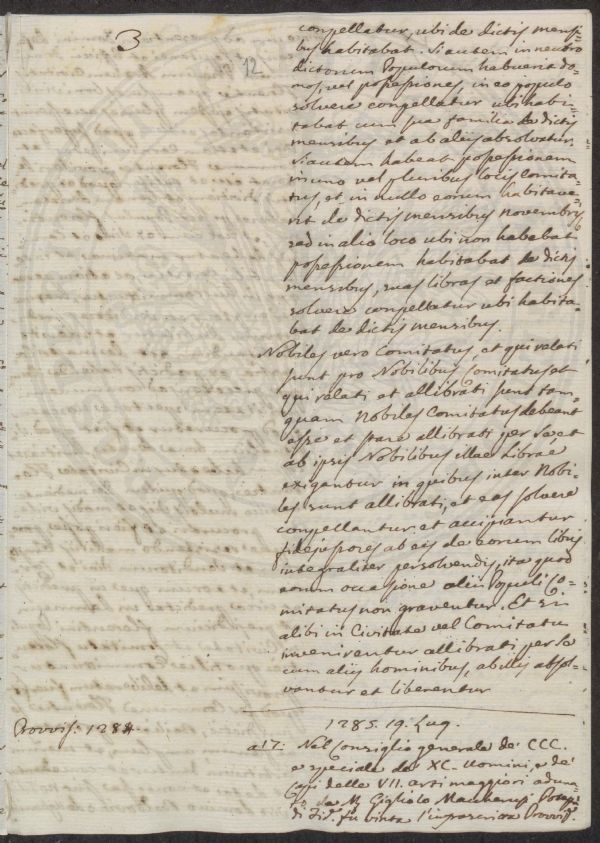 3
12
compellatur, ubi de dictis mensi=
bus habitabat. Si autem in neutro
dictorum Populorum habuerit do=
mos, vel possessiones, in eo populo
solvere compellatur ubi habi=
tabat cum sua familia de dictis
mensibus et ab aliis absolvatur.
Si autem habeat possessionem
in uno vel pluribus locis Comita=
tus, et in nullo eorum habitave=
rit de dictis mensibus Novembris
sed in alio loco ubi non habebat
possessionem habitabat de dictis
mensibus, suas libras et factiones
solvere compellatur ubi habita=
bat de dictis mensibus.
Nobiles vero Comitatus, et qui relati
sunt pro Nobilibus Comitatus et
qui relati et allibrati sunt tam=
quam Nobiles Comitatus debeant
esse et stare allibrati per se et
ab ipsis Nobilibus illae librae
exigantur in quibus inter Nobi=
les sunt allibrati, et eas solvere
compellantur et accipiantur
fidejussores ab eis de eorum libris
integraliter persolvendis, ita quod
eorum occasione alii Populi Co=
mitatus non graventur. Et si
alibi in Civitate vel Comitatu
invenirentur allibrati per se
cum aliis hominibus, ab illis absol=
vantur et liberentur
Provvis: 1284
1285. 19. Lug.
a 17: Nel Consiglio generale de' CCC.
e speciale del XC. Uomini, e de'
Capi delle VII. arti maggiori aduna=
to da M. Gigliolo
di Fir. fu vinta l'infrascritta Provvis.